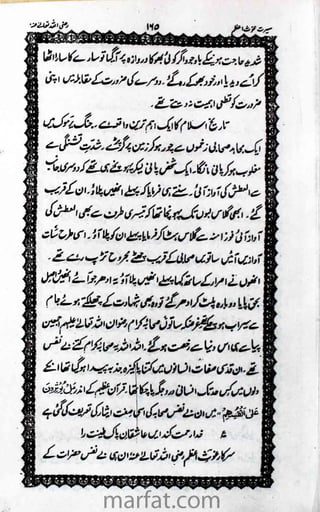 سیرت غوث اعظم ۱۶۵ رضی اللہ تعالیٰ عنہ
شدید حاجت ہونے کے باوجود اگر کوئی بھوکا دروازہ پر آگیا تو سارے کا سارا اٹھا
کر اسے دیدیا اور خود بھوکے رہ گئے۔ دوسرے کی ضرورت کے مقابلہ میں اپنی
ضرورت کو قطعی اہمیت نہ دیتے تھے۔
تاریخ اسلام کا ایک اہم ترین واقعہ ہے۔ جنگ یرموک میں
ایک مجاہد صحابی زخموں سے چور ہو کر زمین پر گر پڑے۔ شدت تشنگی سے
مغلوب ہو کر پانی مانگا۔ ایک شخص پانی لیکر پہونچے ہی تھے کہ دوسری جانب
سے العطش کی آواز آئی۔ سنتے ہی فرمایا کہ پہلے انھیں پلاؤ۔ ان کے قریب
گئے۔ ابھی گلاس لبوں تک پہونچا تھا کہ تیسری طرف سے بھی العطش کی
آواز آئی فوراً منہ سے گلاس ہٹا کر فرمایا پہلے ان کو پلاؤ۔ اسی طرح سات
آوازیں آئیں ساتویں صحابی کے قریب پہنچے تو روح تڑپ رہے تھے۔
انھوں نے اصرار کے ساتھ کہا پہلے انھیں پلاؤ یہ ادھر جو آئے انھیں واصل
بحق پایا دوبارہ پلٹ کر ادھر گئے تو وہ بھی شہادت کے چھلکتے ہوئے جام
سے سیراب ہو چکے تھے غرضکہ ساتوں صحابہ کرام رضوان اللہ تعالیٰ علیہم اجمعین
پیاسے ہی اس دنیا سے رخصت ہو گئے۔ اللہ اللہ یہ صحابہ کرام کتنے بے نفس
تھے۔ ان قدسی صفات انسانوں میں کتنا پاکیزہ جذبہ پیدا ہو گیا تھا۔ انکے
دلوں میں کس حد تک انسانی درد جگہ پا چکا تھا۔ قرآن عظیم کے اندر یُؤْثِرُوْنَ
عَلٰی اَنْفُسِہِمْ میں ان بے نفس صحابہ کی اسی صفت ایثار کی تعریف کی گئی ہے
خدا رحمت کند ایں عاشقان پاک طینت را
سرکار غوث اعظم رضی اللہ تعالیٰ عنہ ان ہی بے نفس حضرات کے
marfat.com